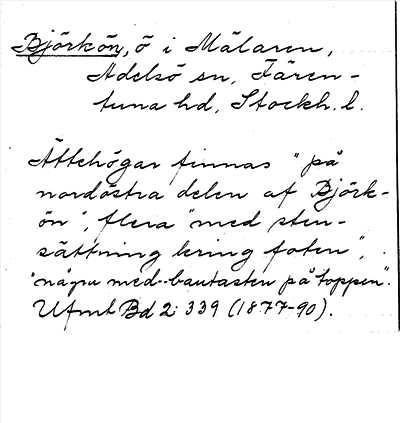 Björkön, ö i Mälaren,
Adelsö sn, Fären-
tuna hd, Stockh. l.
Ättehögar finnas "på
nordöstra delen af Björk-
ön", flera "med sten-
sättning kring foten",
"några med bautasten på toppen".
Ufmt Bd 2: 339 (1877-90).